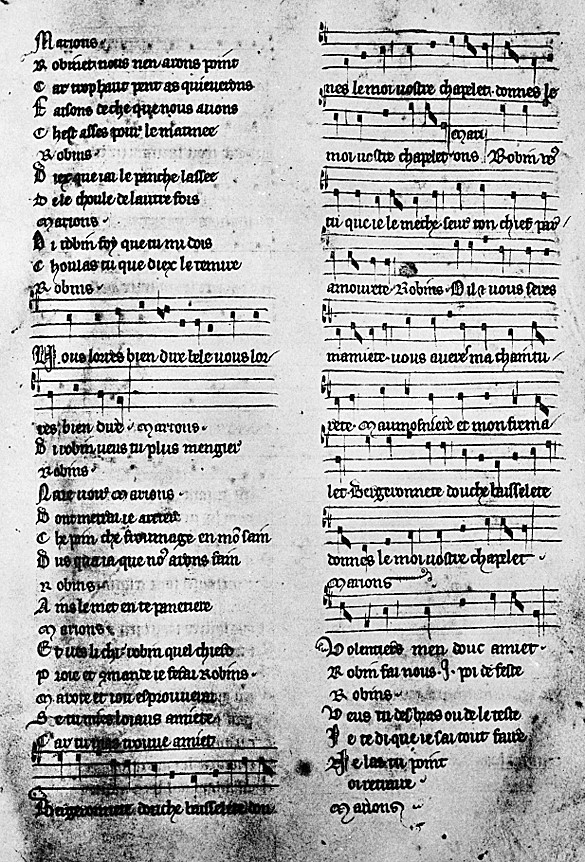 Marions
Robinet nous nen avons point
Car trop haut pent as quieuerons
Faisons de che que nous auons
Chest asses pour le matinee
Robins
Diex que iai le panche lassee
De le choule de lautre fois
Marions
Di robin foy que tu mi dois
Choulas tu que diex le temire
Robins
Vous lorres bien dire bele vous lor
res bien dire Marions
Di robin veus tu plus mengier
Robins
Naie voir Marions
Dont metrai ie arriere
Che pain che froumage en mõ sain
Dus qua ia que noꝰ arons fain
Robins
Ains le met en te panetiere
Marions
Et vesli chi robin quel chiere
Proie et quemande ie ferai Robins
Marote et iou esprouuerai
Se tu mies loiaus amiete
Car tu mas trouue amiet
Bergeronnete douche baisselete don
nes le moi vostre chapelet donnes le
moi vostre chapelet Mari ons Robin veꝰ
tu que ie le meche seur ton chief par
amourete Robins Oil vous seres
mamiete vous aueres ma chaintu
rete Maumosniere et mon frema
let Bergeronnete douche baisselete
donnes le moi vostre chaplet
Marions
Volentiers men douc amiet
Robin fai nous .i. poi de feste
Robins
Veus tu des bras ou de le teste
Ie te di que ie sai tout faire
Ne las tu point
oi retraire
Marions